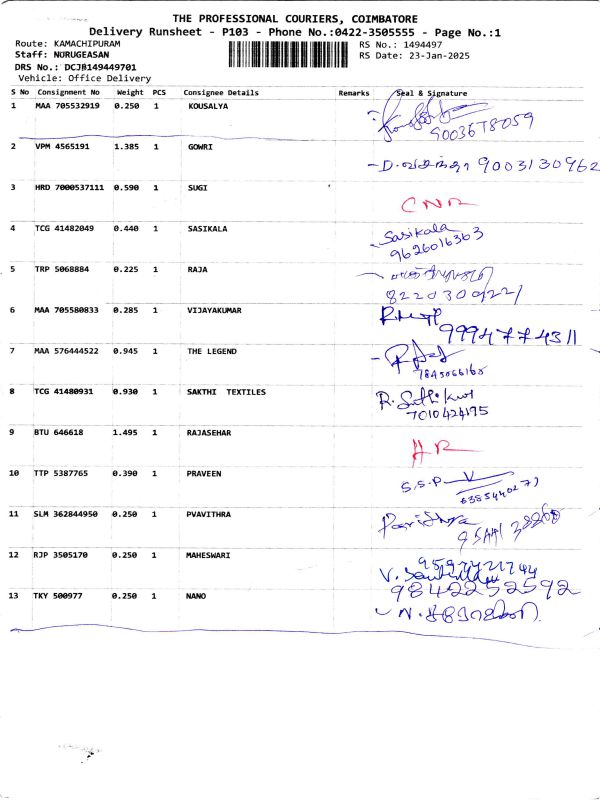 THE PROFESSIONAL COURIERS, COIMBATORE
Delivery Runsheet - P103 - Phone No.:0422-3505555 - Page No.:1
Route: KAMACHIPURAM
RS No.: 1494497
Staff: NURUGEASAN
RS Date: 23-Jan-2025
DRS No.: DCJB149449701
Vehicle: Office Delivery
S No Consignment No Weight PCS Consignee Details Remarks Seal & Signature
1 MAA 705532919 0.250 1 KOUSALYA
2 VPM 4565191 1.385 1 GOWRI
9003130962
3 HRD 7000537111 0.590 1 SUGI
CNR
4 TCG 41482049 0.440 1 SASIKALA
Sasikala
9626016363
5 TRP 5068884 0.225 1 RAJA
6 MAA 705580833 0.285 1 VIJAYAKUMAR
9994774311
7 MAA 576444522 0.945 1 THE LEGEND
8 TCG 41480931 0.930 1 SAKTHI TEXTILES
7010424195
9 BTU 646618 1.495 1 RAJASEHAR
HR
10 TTP 5387765 0.390 1 PRAVEEN
S.S.P
11 SLM 362844950 0.250 1 PVAVITHRA
12 RJP 3505170 0.250 1 MAHESWARI
13 TKY 500977 0.250 1 NANO
9842252592